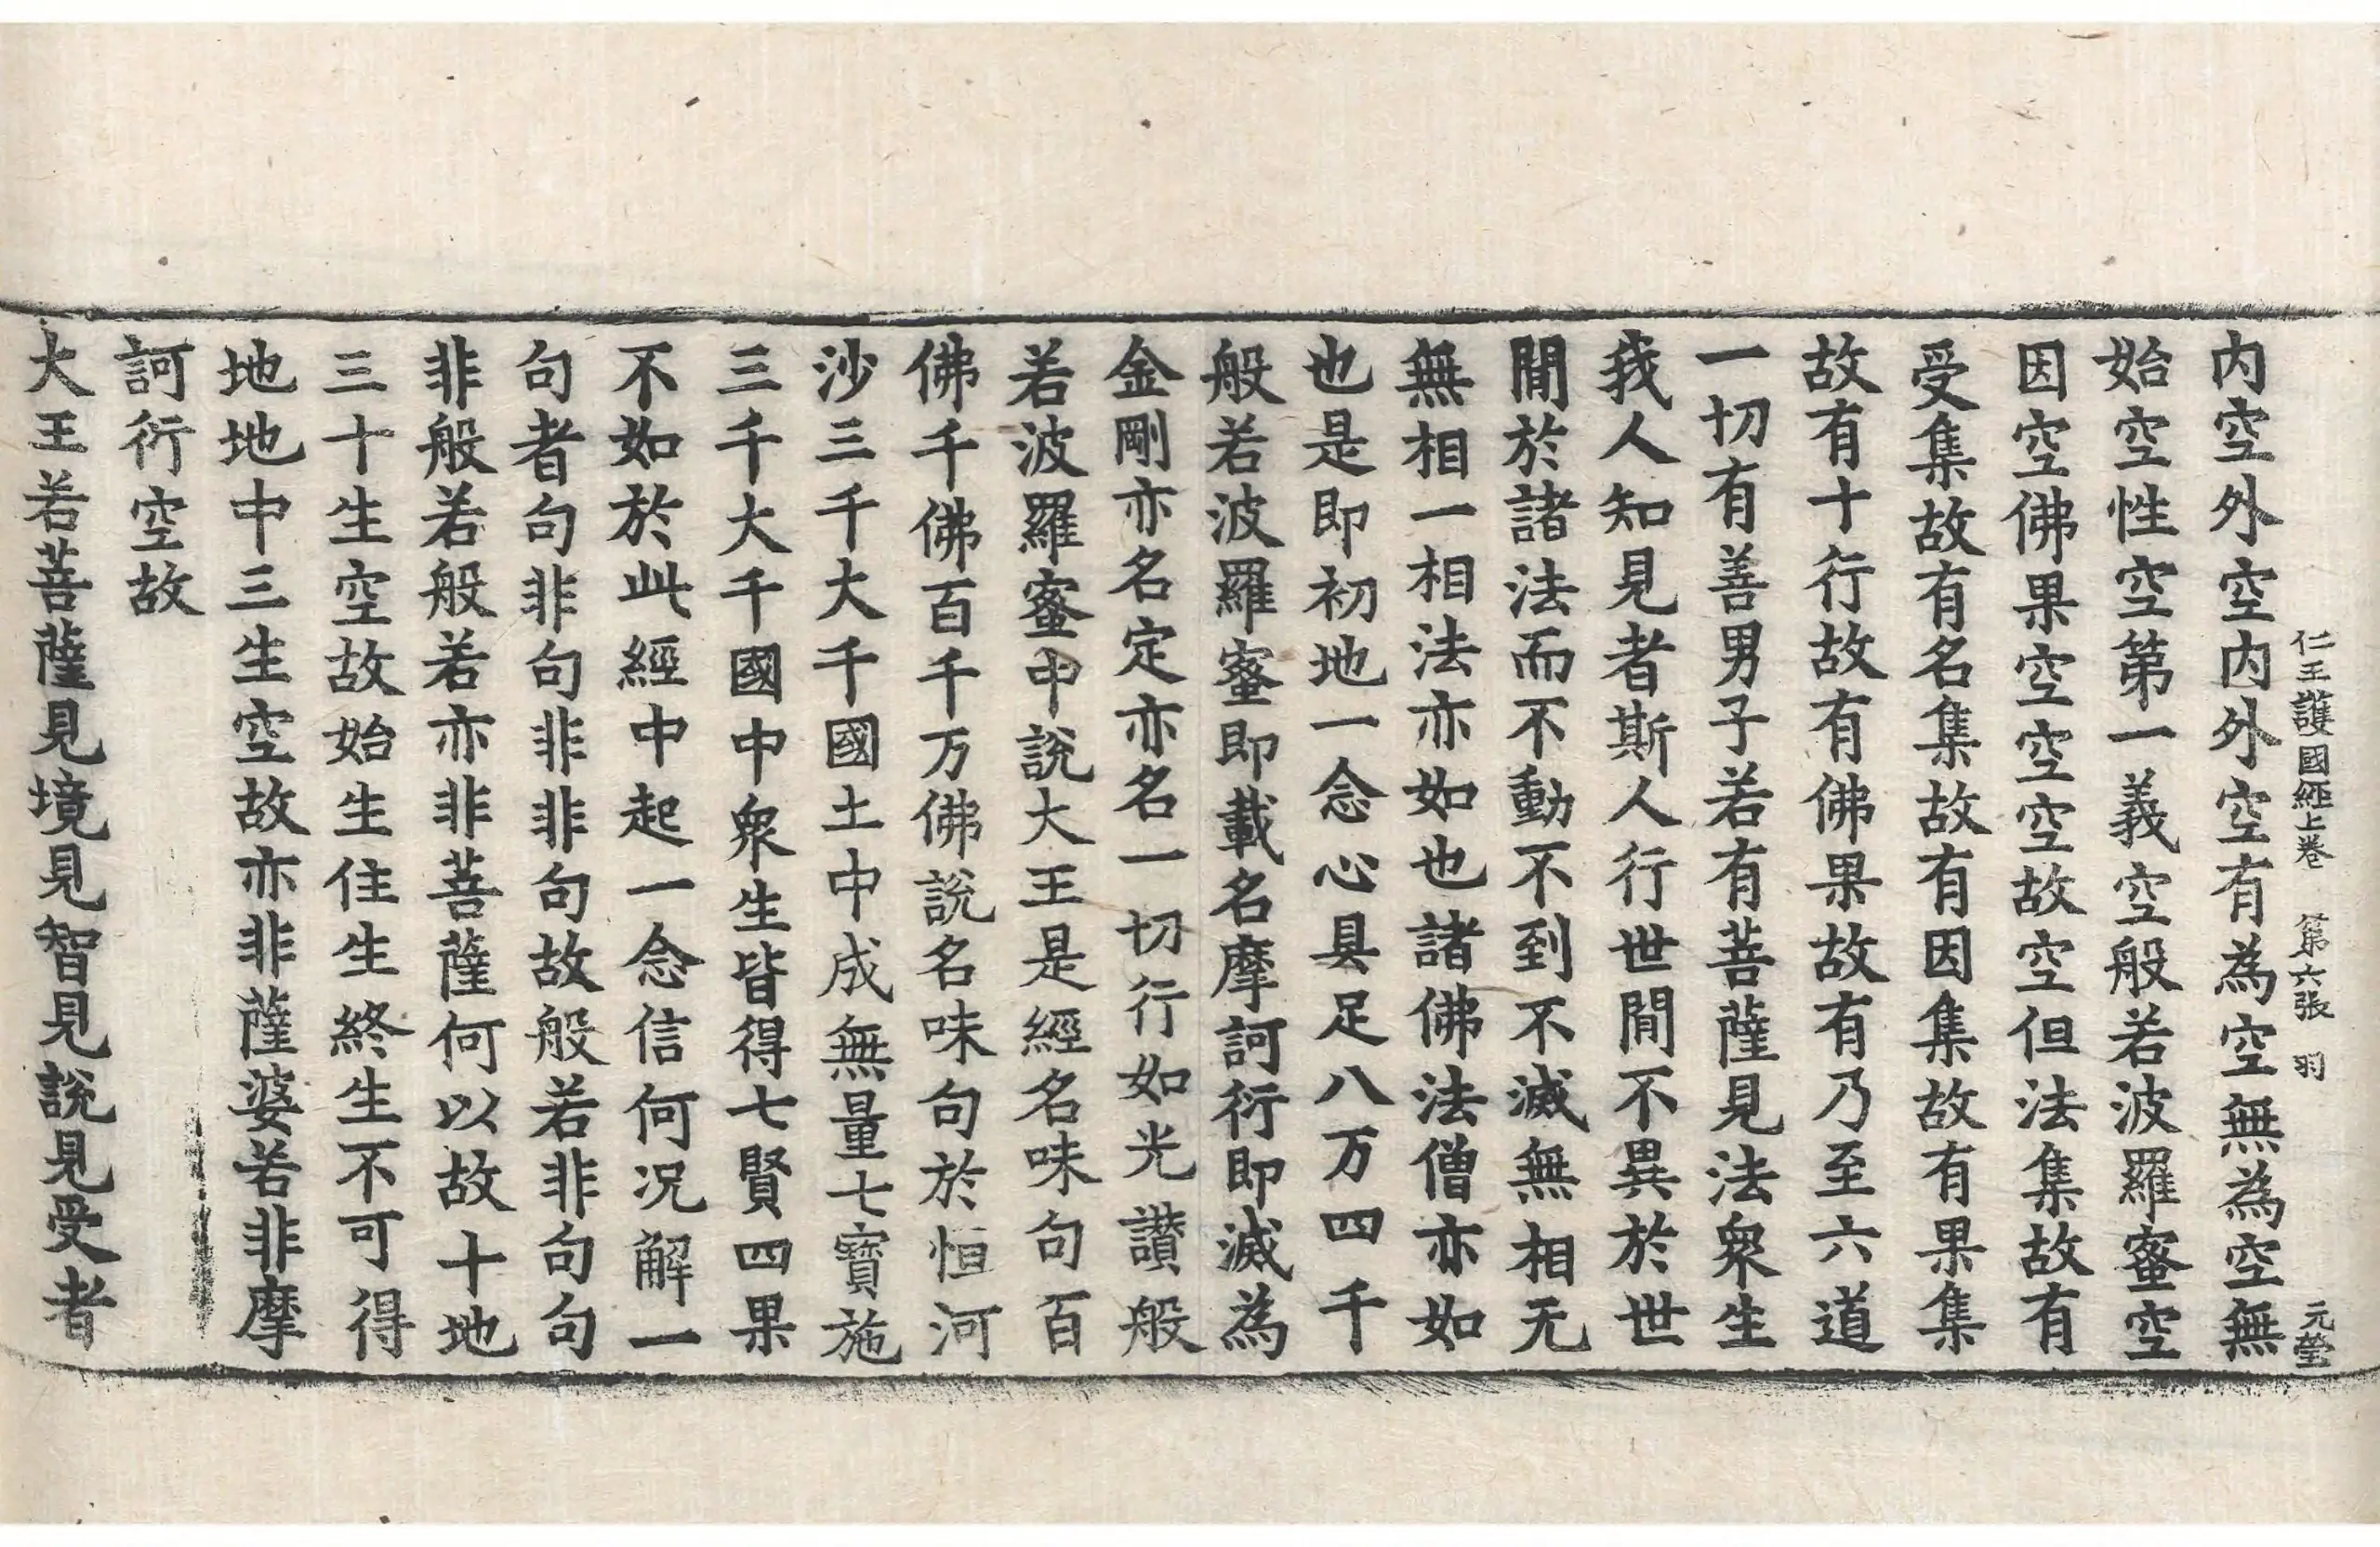 仁王護國經上卷 第六張 羽 元瑩
内空外空内外空有為空無為空無
始空性空第一義空般若波羅蜜空
因空佛果空空空故空但法集故有
受集故有名集故有因集故有果集
故有十行故有佛果故有乃至六道
一切有善男子若有菩薩見法衆生
我人知見者斯人行世間不異於世
間於諸法而不動不到不滅無相无
無相一相法亦如也諸佛法僧亦如
也是即初地一念心具足八万四千
般若波羅蜜即載名摩訶衍即滅為
金剛亦名定亦名一切行如光讚般
若波羅蜜中說大王是經名味句百
佛千佛百千万佛說名味句於恒河
沙三千大千國土中成無量七寳施
三千大千國中衆生皆得七賢四果
不如於此經中起一念信何况解一
句者句非句非非句故般若非句句
非般若般若亦非菩薩何以故十地
三十生空故始生住生終生不可得
地地中三生空故亦非薩婆若非摩
訶衍空故
大王若菩薩見境見智見說見受者